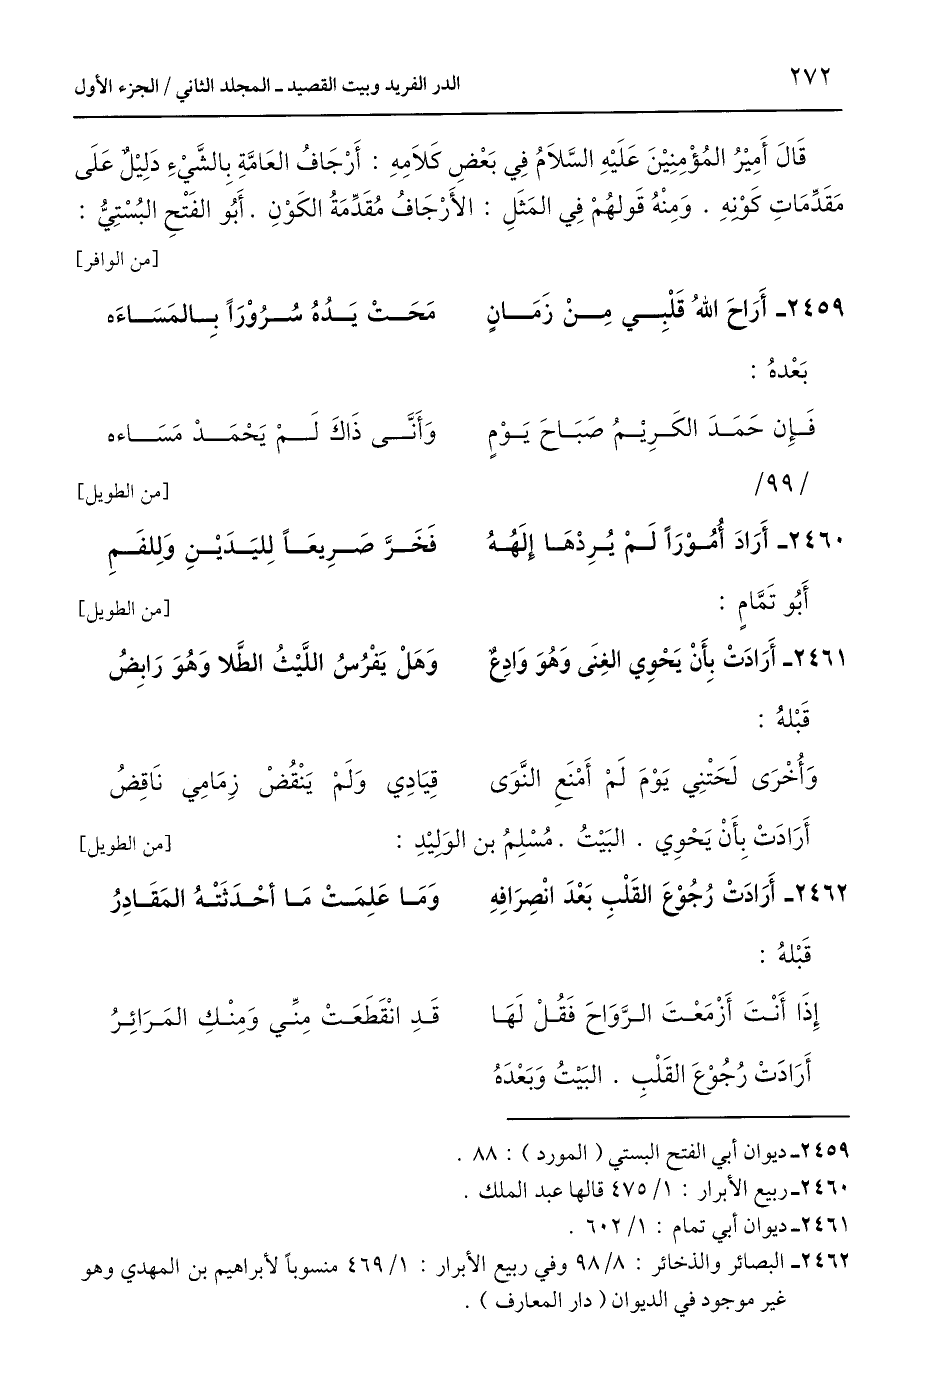 ٢٧٢ الدر الفريد وبيت القصيد ـ المجلد الثاني / الجزء الأول
قَالَ أَمِيْرُ المُؤْمِنِيْنَ عَلَيْهِ السَّلاَمُ فِي بَعْضِ كَلاَمِهِ : أَرْجَافُ العَامَّةِ بِالشَّيْءِ دَلِيْلٌ عَلَى
مَقَدِّمَاتِ كَوْنِهِ . وَمِنْهُ قَولهُمْ فِي المَثَلِ : الأَرْجَافُ مُقَدِّمَةُ الكَوْنِ . أَبُو الفَتْحِ البُسْتِيُّ :
[من الوافر]
٢٤٥٩ـ أَرَاحَ اللهُ قَلْبِـي مِـنْ زَمَـانٍ مَحَـتْ يَـدُهُ سُـرُوْرَاً بِـالمَسَـاءَه
بَعْدهُ :
فَـإِن حَمَـدَ الكَـرِيْـمُ صَبَـاحَ يَـوْمٍ وَأَنَّـى ذَاكَ لَـمْ يَحْمَـدْ مَسَـاءه
/٩٩/ [من الطويل]
٢٤٦٠ـ أَرَادَ أُمُـوْرَاً لَـمْ يُـرِدْهَـا إِلَهُـهُ فَخَـرَّ صَـرِيعَـاً لِليَـدَيْـنِ وَلِلفَـمِ
أَبُو تَمَّامٍ : [من الطويل]
٢٤٦١ـ أَرَادَتْ بِأَنْ يَحْوِي الغِنَى وَهُوَ وَادِعٌ وَهَلْ يَفْرُسُ اللَّيْثُ الطَّلا وَهُوَ رَابِضُ
قَبْلهُ :
وَأُخْرَى لَحَتْنِي يَوْمَ لَمْ أَمْنَعِ النَّوَى قِيَادِي وَلَمْ يَنْقُضْ زِمَامِي نَاقِضُ
أَرَادَتْ بِأَنْ يَحْوِي . البَيْتُ . مُسْلِمُ بن الوَلِيْدِ : [من الطويل]
٢٤٦٢ـ أَرَادَتْ رُجُوْعَ القَلْبِ بَعْدَ انْصِرَافِهِ وَمَـا عَلِمَـتْ مَـا أحْـدَثَتْـهُ المَقَـادِرُ
قَبْلهُ :
إِذَا أَنْـتَ أَزْمَعْـتَ الـرَّوَاحَ فَقُـلْ لَهَـا قَـدِ انْقَطَعَـتْ مِنِّـي وَمِنْـكِ المَـرَائِـرُ
أَرَادَتْ رُجُوْعَ القَلْبِ . البَيْتُ وَبَعْدَهُ
٢٤٥٩ـ ديوان أبي الفتح البستي ( المورد ) : ٨٨ .
٢٤٦٠ـ ربيع الأبرار : ١/ ٤٧٥ قالها عبد الملك .
٢٤٦١ـ ديوان أبي تمام : ١/ ٦٠٢ .
٢٤٦٢ـ البصائر والذخائر : ٨/ ٩٨ وفي ربيع الأبرار : ١/ ٤٦٩ منسوباً لأبراهيم بن المهدي وهو
غير موجود في الديوان ( دار المعارف ) .